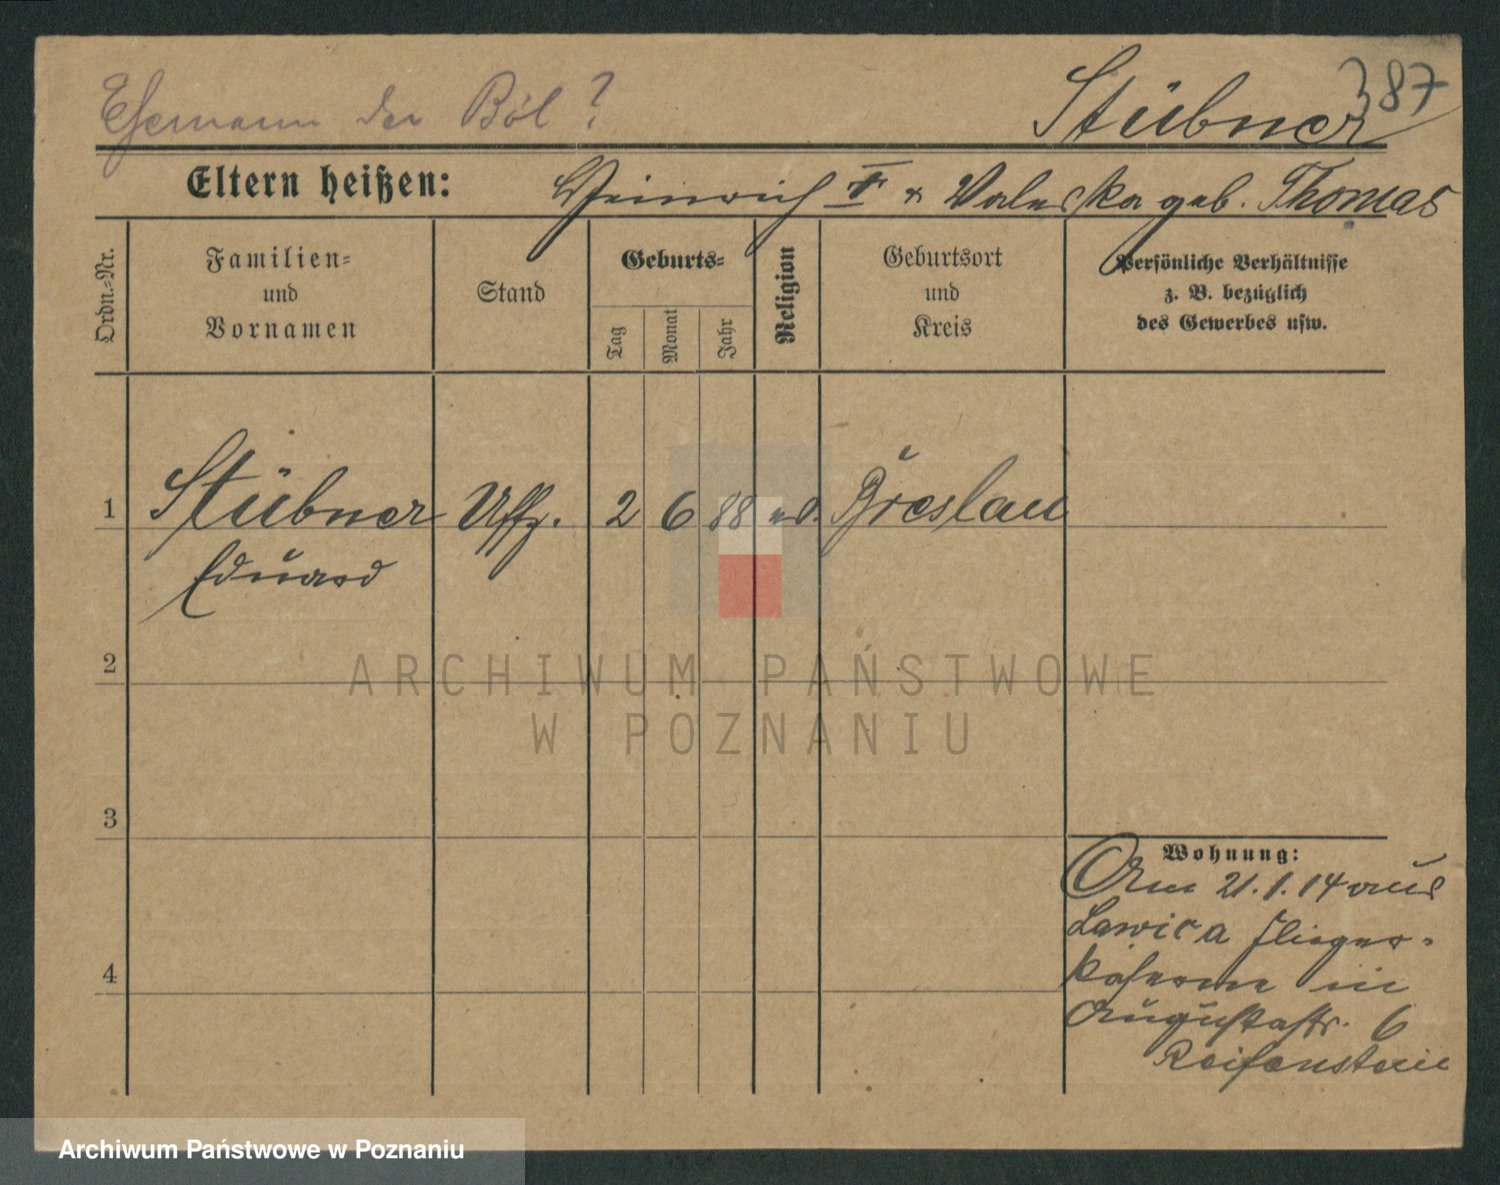 387
Ehemann der Böl?
Stübner
Eltern heißen: Heinrich & Valeska geb. Thomas
Ordn.=Nr.
Familien=
und
Vornamen
Stand
Geburts=
Tag
Monat
Jahr
Religion
Geburtsort
und
Kreis
Persönliche Verhältnisse
z. B. bezüglich
des Gewerbes usw.
1 Stübner Uffz. 2 6 88 Breslau
Eduard
2
3
4
Wohnung:
Am 21.1.14 aus
Lawica Flieger-
kaserne in
Augustastr. 6
ARCHIWUM PAŃSTWOWE
W POZNANIU
Archiwum Państwowe w Poznaniu